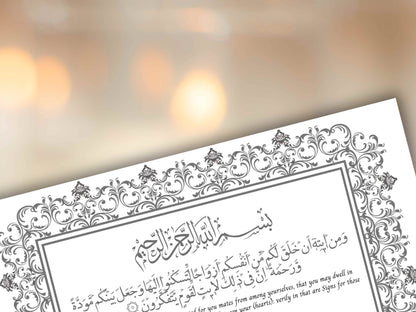 بسم الله الرحمن الرحيم
ومن آيته أن خلق لكم من أنفسكم أزواجا لتسكنوا إليها وجعل بينكم مودة
ورحمة إن في ذلك لآيت لقوم يتفكرون
for you mates from among yourselves, that you may dwell in
your (hearts): verily in that are Signs for those